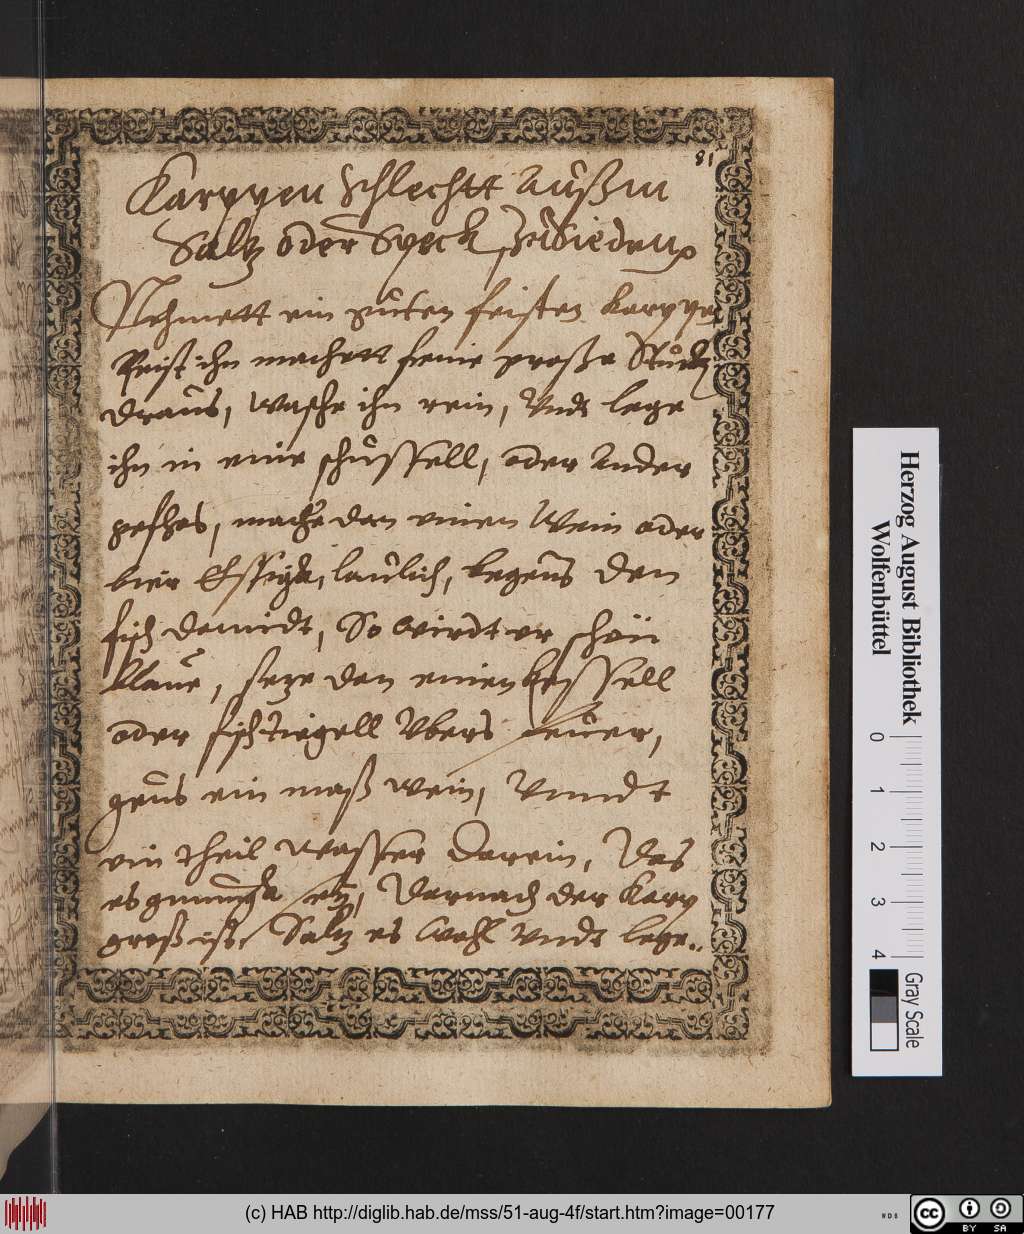 81
Karppen schlechtt Außm
Saltz oder Speck zuSieden
Nehmett ein guten feisten Karppe
Reist ihn machett feine große Stuck
draus, wasche ihn rein, Undt lege
ihn in eine schüssell, oder Ander
gefhes, mache dan einen Wein oder
bier Essigk, laulich, begeus den
fisch damidt, So wirdt er schön
blaue, seze dan einen kessell
oder fischtiegell Vbers feuer,
geus ein maß wein, Vnndt
ein theil wasser darein, Das
es gnungk sey, Darnach der Karp
groß ist, Saltz es Wohl Vndt lege..
Herzog August Bibliothek
Wolfenbüttel
0 1 2 3 4
Gray Scale
(c) HAB http://diglib.hab.de/mss/51-aug-4f/start.htm?image=00177
WDB
cc BY SA